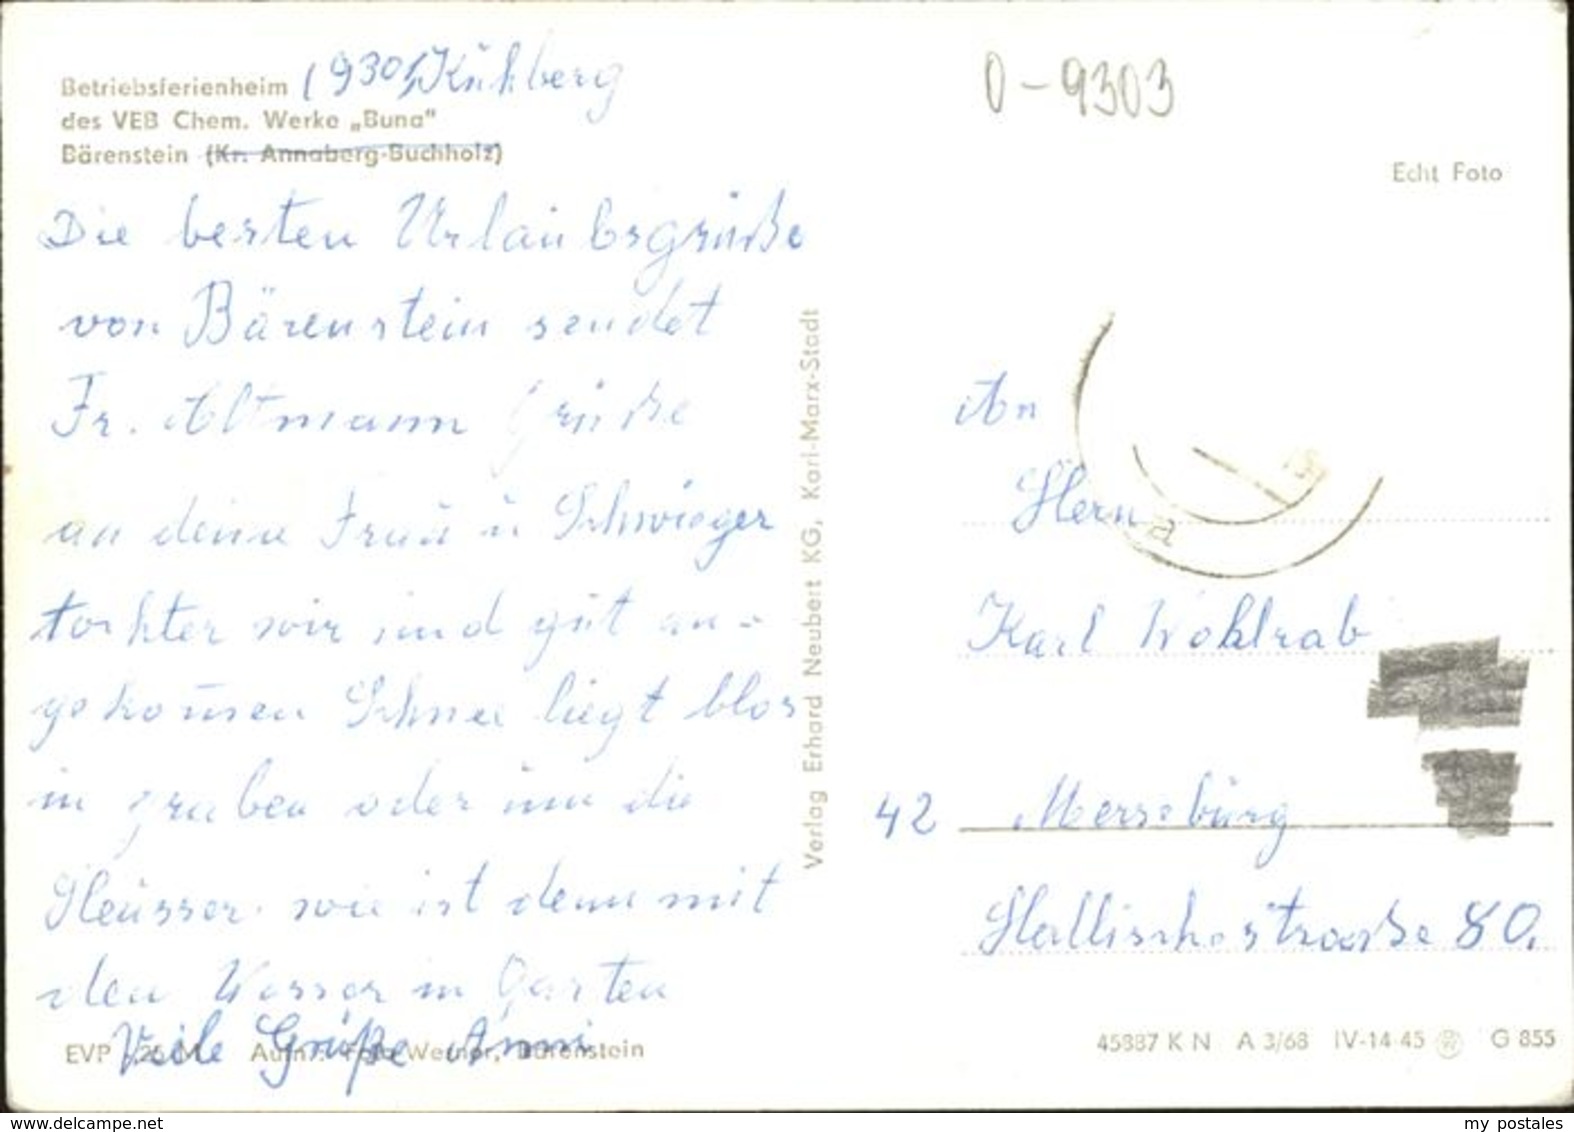 Betriebsferienheim (9301) Kühberg
des VEB Chem. Werke „Buna“
Bärenstein (Kr. Annaberg-Buchholz)
Die besten Urlaubsgrüße
von Bärenstein sendet
Fr. Altmann Grüße
an deine Frau u Schwieger
tochter wir sind gut an-
gekom̄en Schnee liegt blos
in graben oder um die
Heüsser. wie ist denn mit
den Wasser in Garten
Viele Grüße Anni
EVP Aufn.: Foto Werner, Bärenstein
Verlag Erhard Neubert KG, Karl-Marx-Stadt
0-9303
Echt Foto
An
Herrn
Karl Wohlrab
42 Merseburg
Hallischestraße 80.
45887 K N A 3/68 IV-14-45 G 855
www.delcampe.net
my_postales